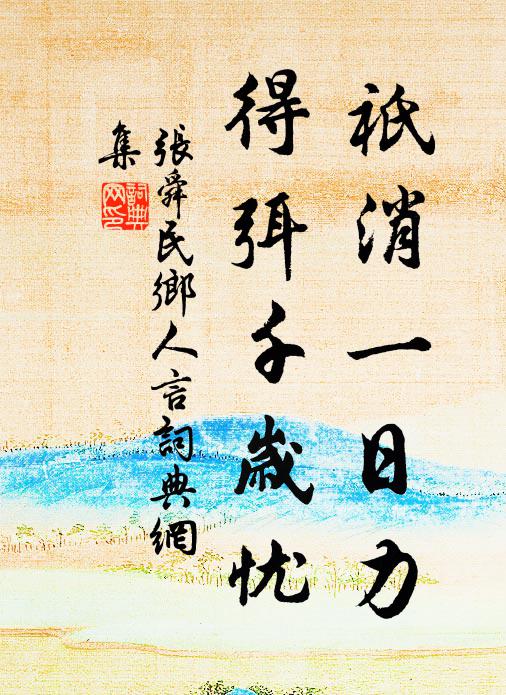 祇消一日力
得弭千歲忧
張舜民鄉人言詞典網
集
詞典
网印